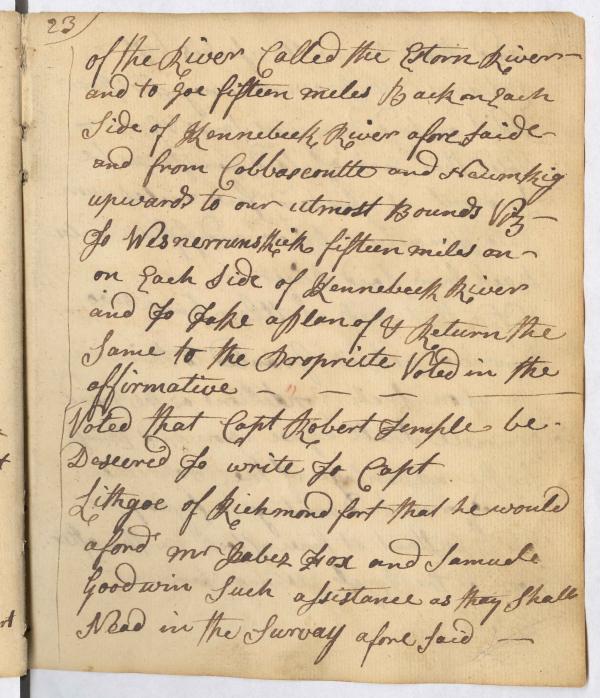 23
of the River Called the Estorn River
and to Goe fifteen miles Back on Each
Side of Kennebeck River afore Saide
and from Cobbascontte and Naumkig
upwards to our utmost Bounds Viz
To Wesnerrunskick fifteen miles on
on Each Side of Kennebeck River
and To Take a Plan of & Return the
Same to the Propriete Voted in the
affirmative
Voted that Capt Robert Temple be
Desiered To write To Capt
Lithgoe of Richmond fort that he would
aford mr Jabez Fox and Samuele
Goodwin Such assistance as thay Shall
Nead in the Survay afore Said